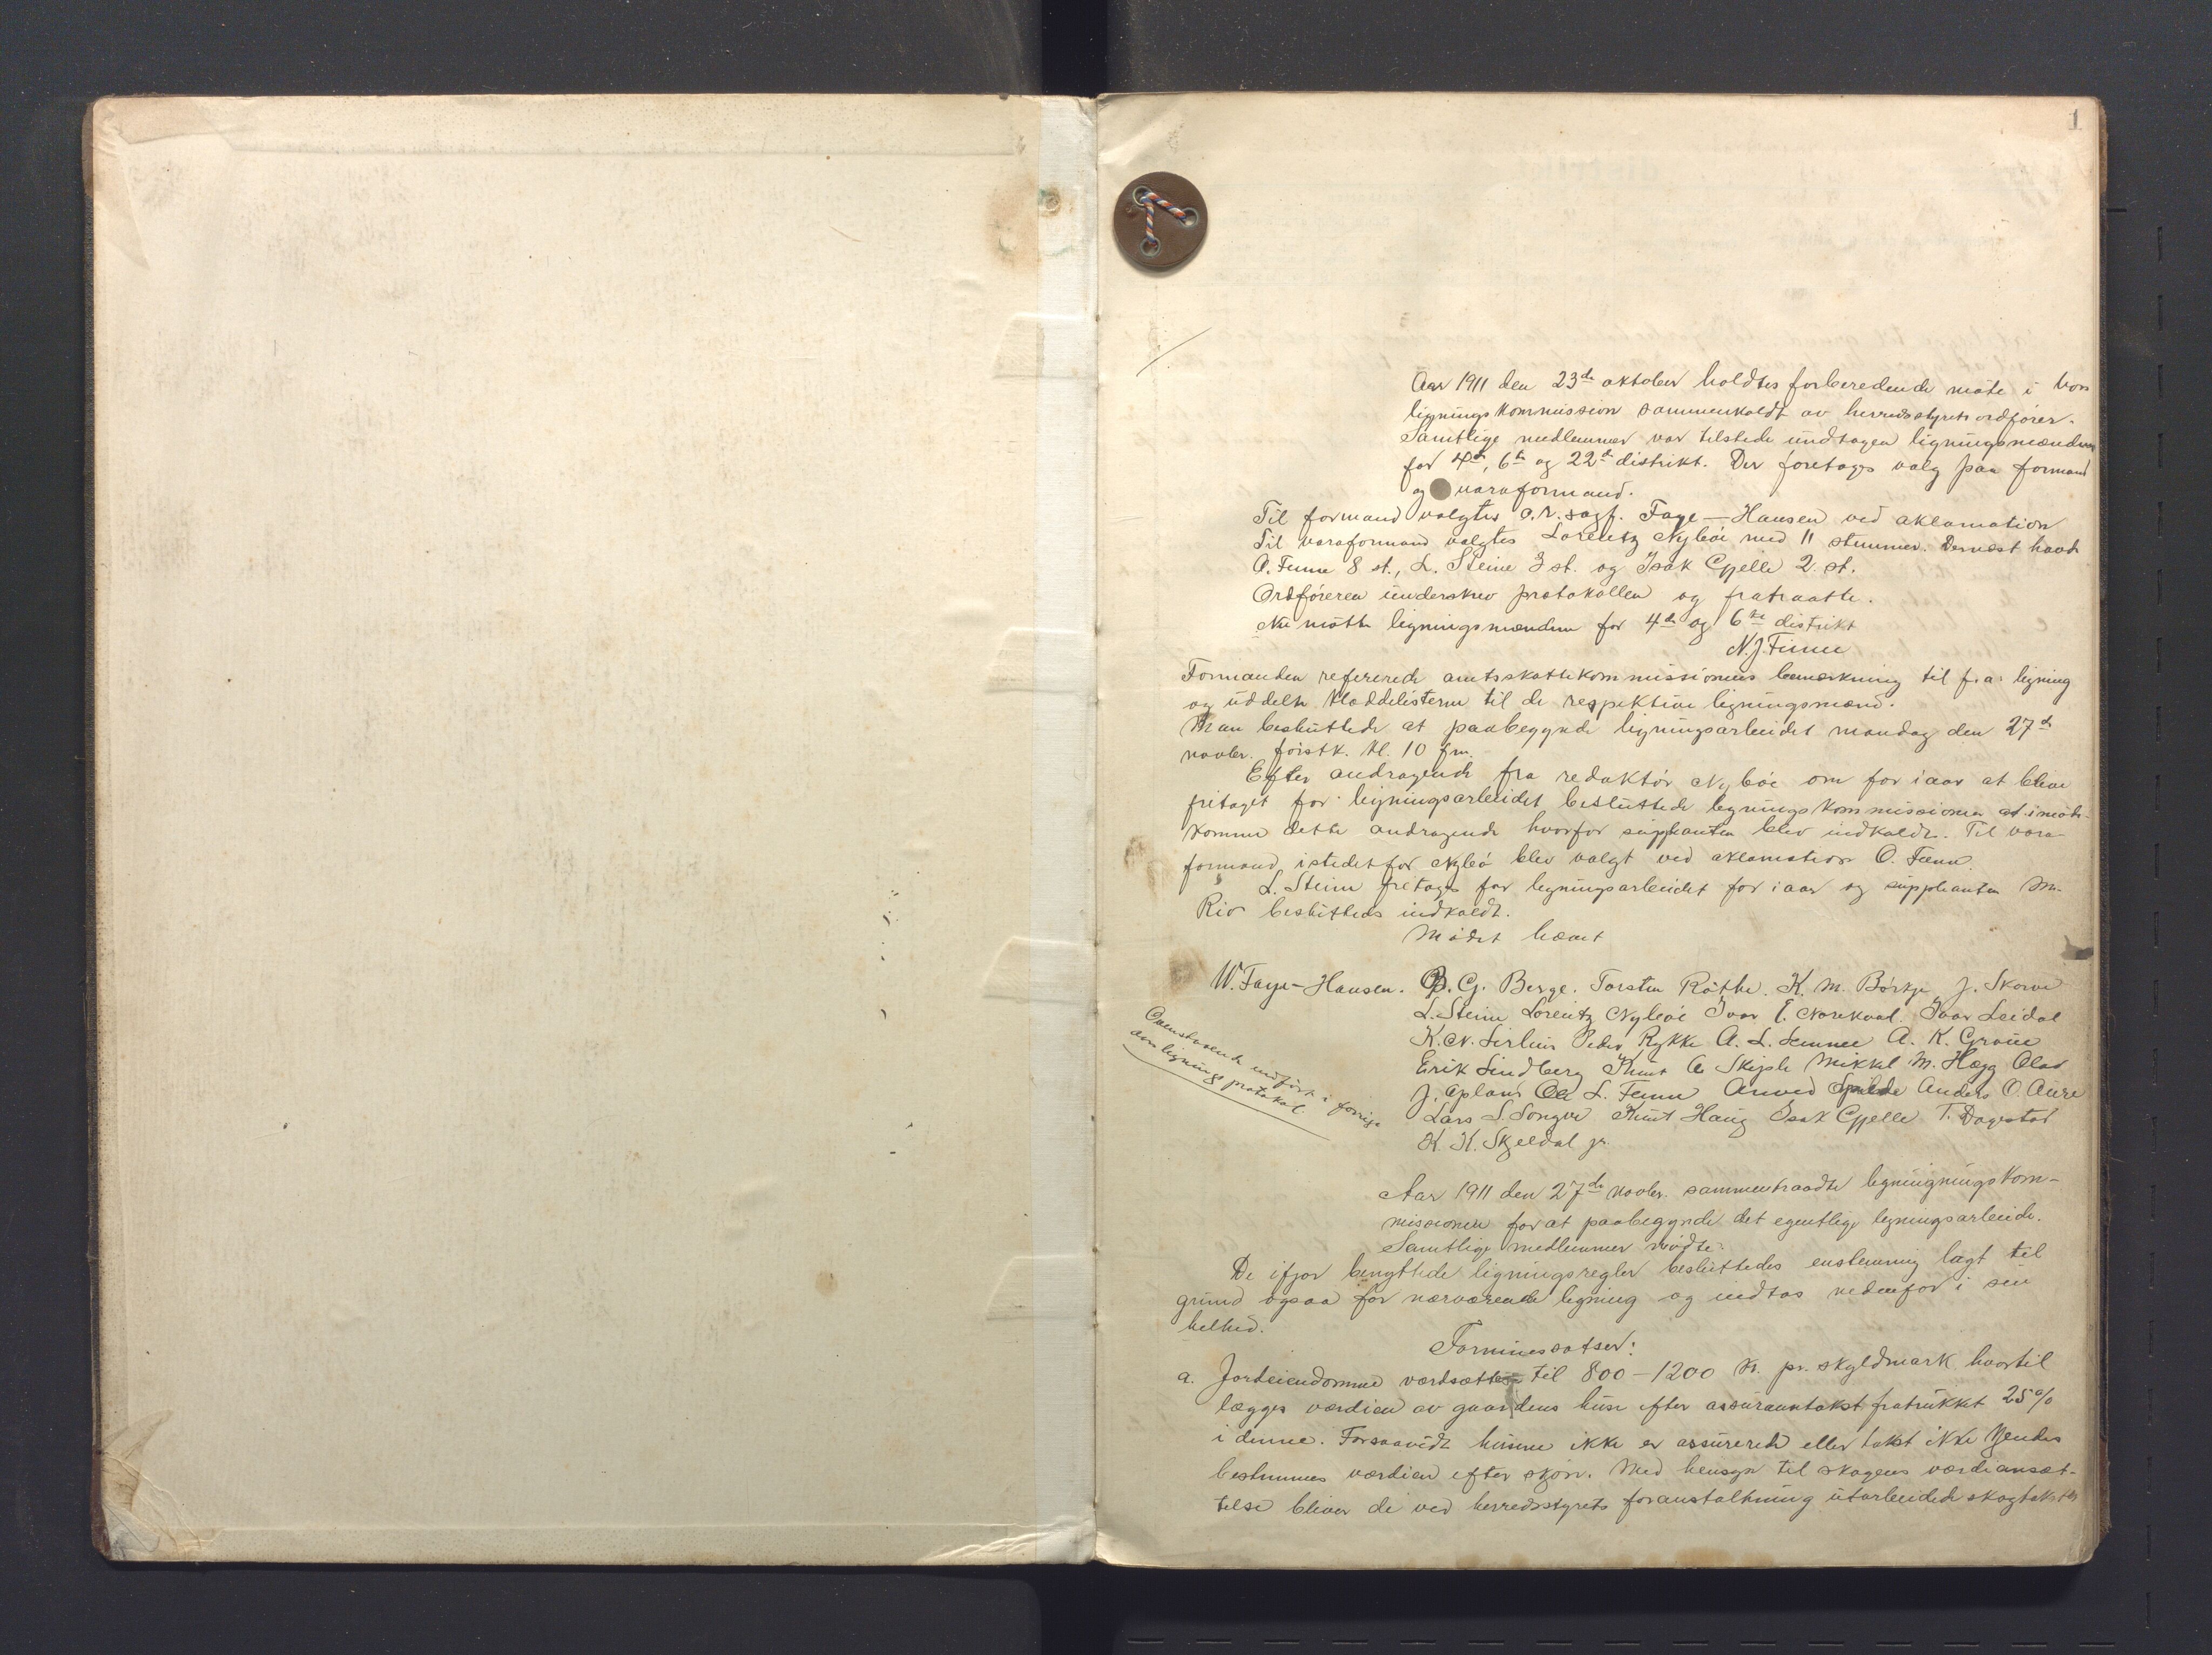 1
Aar 1911 den 23de oktober holdtes forberedende møte i Voss
ligningskommission sammenkaldt av herredsstyrets ordfører.
Samtlige medlemmer var tilstede undtagen ligningsmændene
for 4de, 6te og 22de distrikt. Der foretoges valg paa formand
og varaformand.
Til formand valgtes o.r.sagf. Faye-Hansen ved aklamation
Til varaformand valgtes Lorentz Nybøe med 11 stemmer. Dernæst havde
O. Finne 8 st., L. Steine 3 st. og Isak Gjelle 2 st.
Ordføreren underskrev protokollen og fratraatte.
Nu møtte ligningsmændene for 4de og 6te distrikt
N.J. Finne
Formanden refererede amtsskattekommissionens bemærkning til f.a. ligning
og uddelte kladdelisterne til de respektive ligningsmænd.
Man besluttede at paabegynde ligningsarbeidet mandag den 27de
novbr. førstk. kl. 10 fm.
Efter andragende fra redaktør Nybøe om for iaar at bleve
fritaget for ligningsarbeidet besluttede ligningskommissionen at imøte-
komme dette andragende hvorfor suppleanten blev indkaldt. Til vara-
formand istedetfor Nybø blev valgt ved aklamation O. Finne.
L. Steine fritoges for ligningsarbeidet for iaar og suppleanten M.
Rio besluttedes indkaldt.
Mødet hævet
W. Faye-Hansen. B. G. Berge. Torsten Røthe. K. M. Børkje J. Skorve
L. Steine Lorentz Nybøe Ivar E. Norekval. Ivar Leidal
K. N. Lirhus Peder Rykke A. L. Lemme A. K. Grove
Erik Lindberg Knut A Skiple Mikkel M. Hægg Olav
J. Opland Ole L. Finne Anved Spilde Anders O. Aure
Lars L Songve Knut Haug Isak Gjelle T. Dagestad
K. K. Skjeldal jr.
Ovenstaaende indført i forrige
aars lignings protokol.
Aar 1911 den 27de novbr. sammentraadte ligningningskom-
missionen for at paabegynde det egentlige ligningsarbeide.
Samtlige medlemmer mødte.
De ifjor benyttede ligningsregler besluttedes enstemmig lagt til
grund ogsaa for nærværende ligning og indtas nedenfor i sin
helhed.
Formuessatser:
a. Jordeiendomme værdsættes til 800-1200 kr. pr. skyldmark hvortil
lægges værdien av gaardens huse efter assurancetakst fratrukket 25%
i denne. Forsaavidt husene ikke er assurerede eller takst ikke kjendes
bestemmes værdien efter skjøn. Med hensyn til skogens værdiansæt-
telse bliver de ved herredsstyrets foranstaltning utarbeidede skogtakster